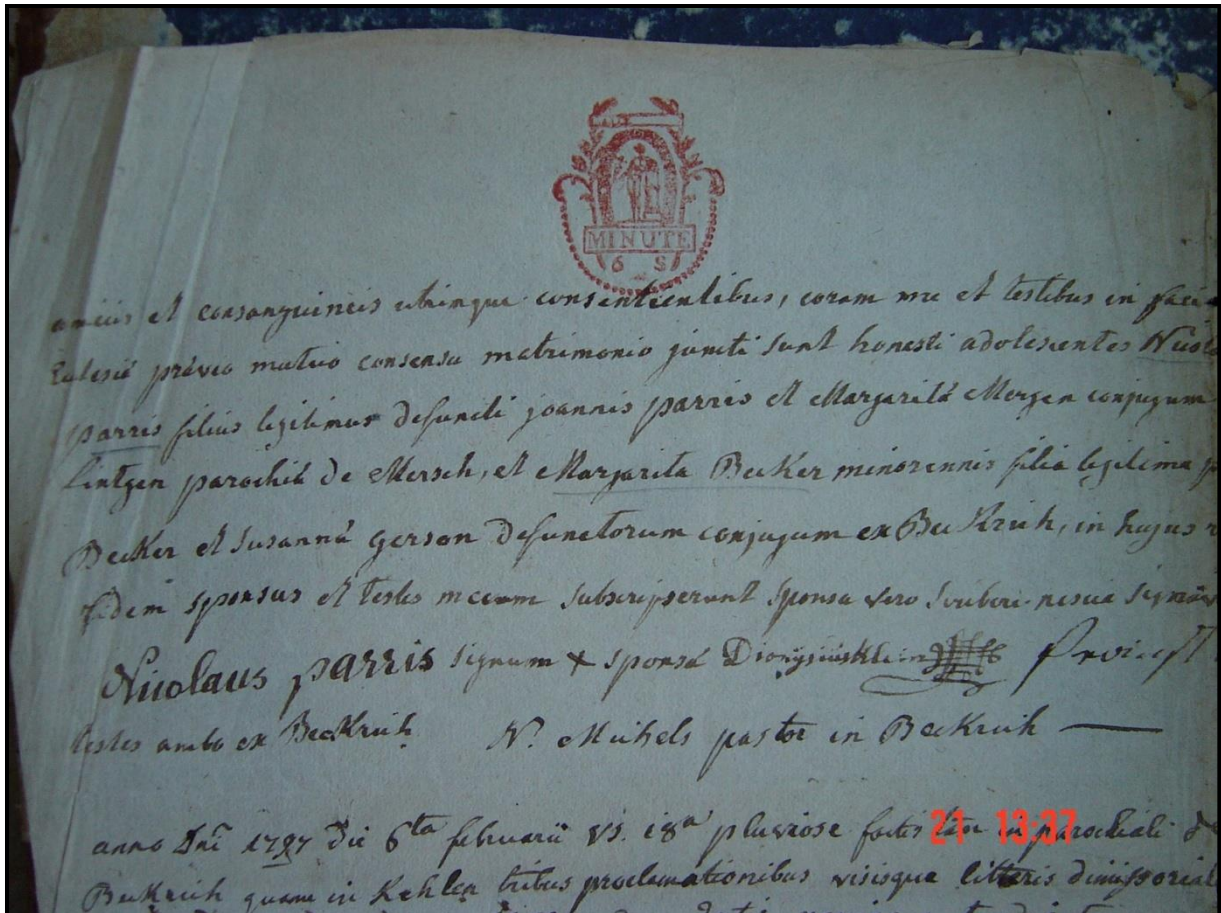 MINUTE
6 S
amicis et consanguineis utrinque consentientibus, coram me et testibus in facie
Eclesiæ prævio mutuo consensu matrimonio juncti sunt honesti adolescentes Nicola
parris filius legitimus defuncti joannis parris et Margaritâ Mergen conjugum
Lintgen parochiâ de Mersch, et Margarita Becker minorennis filia legitima
Becker et Susannâ gerson defunctorum conjugum ex Beckrich, in hujus
fidem sponsus et testes mecum subscripserunt sponsa vero scribere nescia
Nicolaus parris signum + sponsæ Dionysius Klein
testes ambo ex Beckrich N. Michels pastor in Beckrich
anno Dni 1797 die 6ta februarii vs. 18a pluviose factis tam in parochiali
21 13:37
Beckrich quam in Kehlen tribus proclamationibus visisque litteris dimissorial